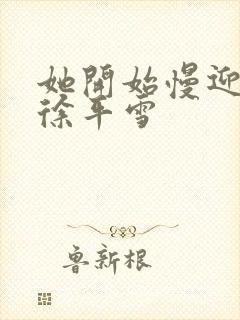 她開始慢迎
徐平雪
鲁新根